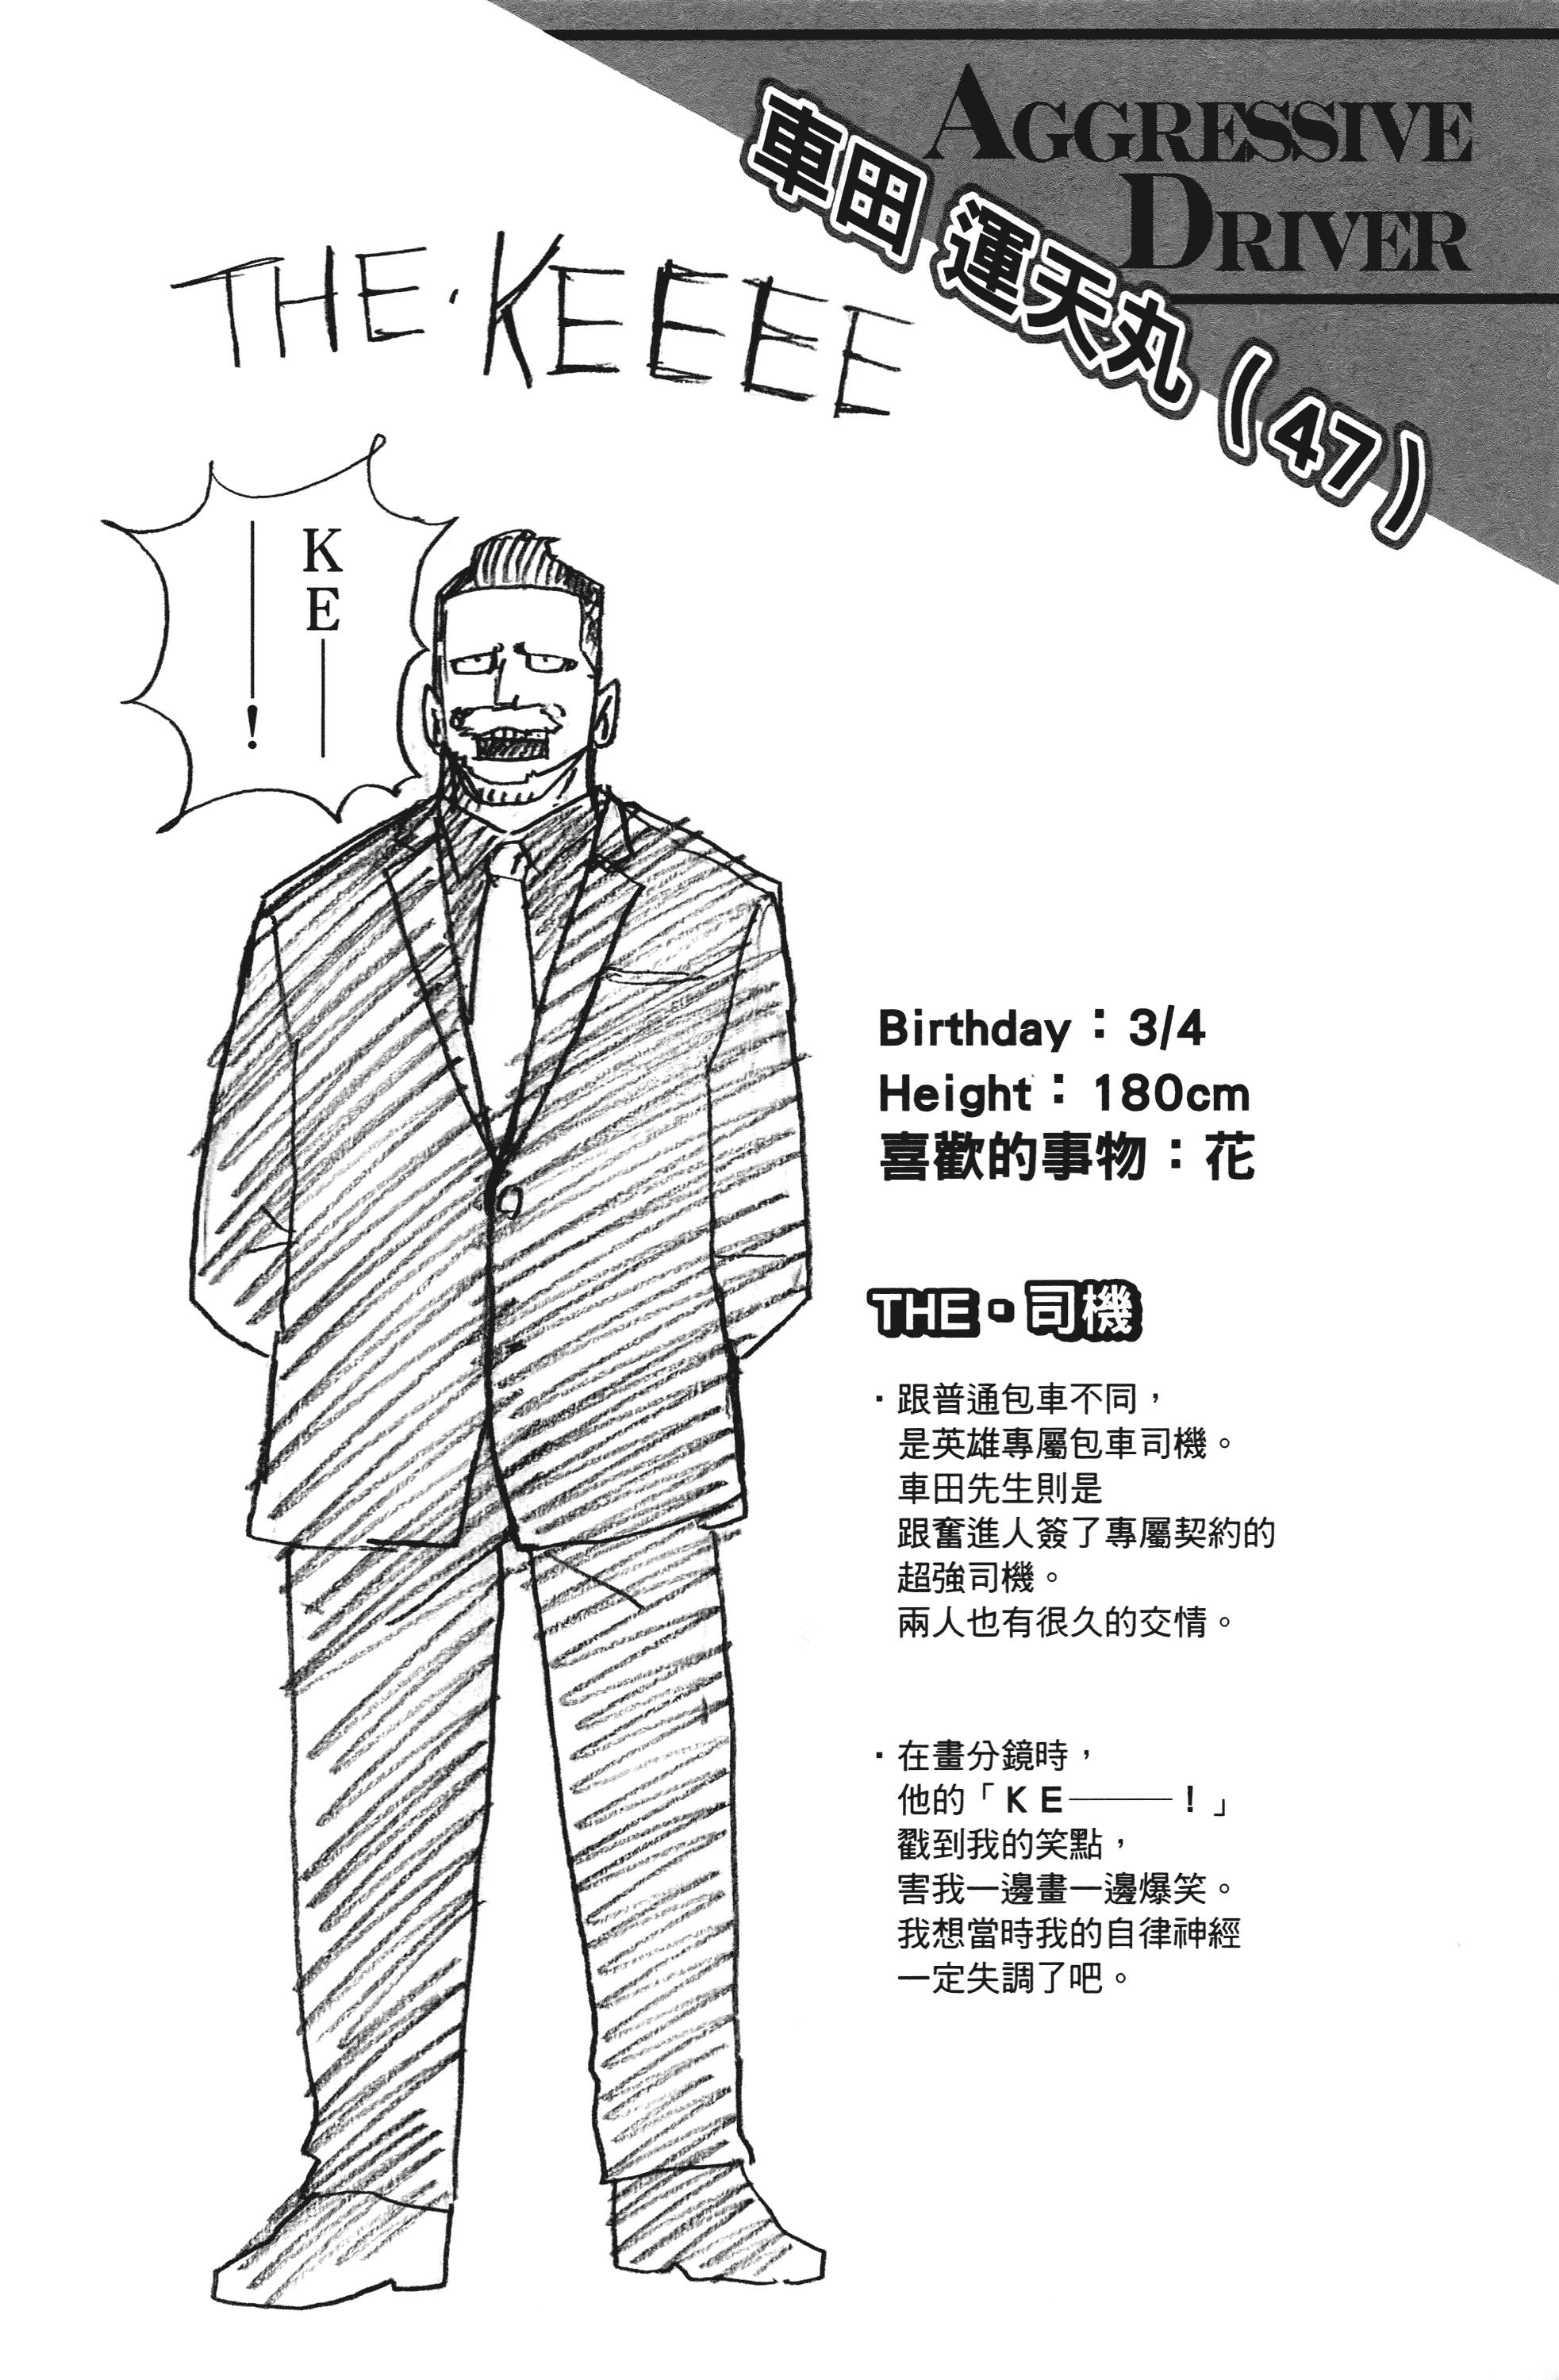 AGGRESSIVE
DRIVER
車田 運天丸（47）
THE・KEEEE
KE——
——！
Birthday：3/4
Height：180cm
喜歡的事物：花
THE・司機
・跟普通包車不同，
是英雄專屬包車司機。
車田先生則是
跟奮進人簽了專屬契約的
超強司機。
兩人也有很久的交情。
・在畫分鏡時，
他的「ＫＥ———！」
戳到我的笑點，
害我一邊畫一邊爆笑。
我想當時我的自律神經
一定失調了吧。